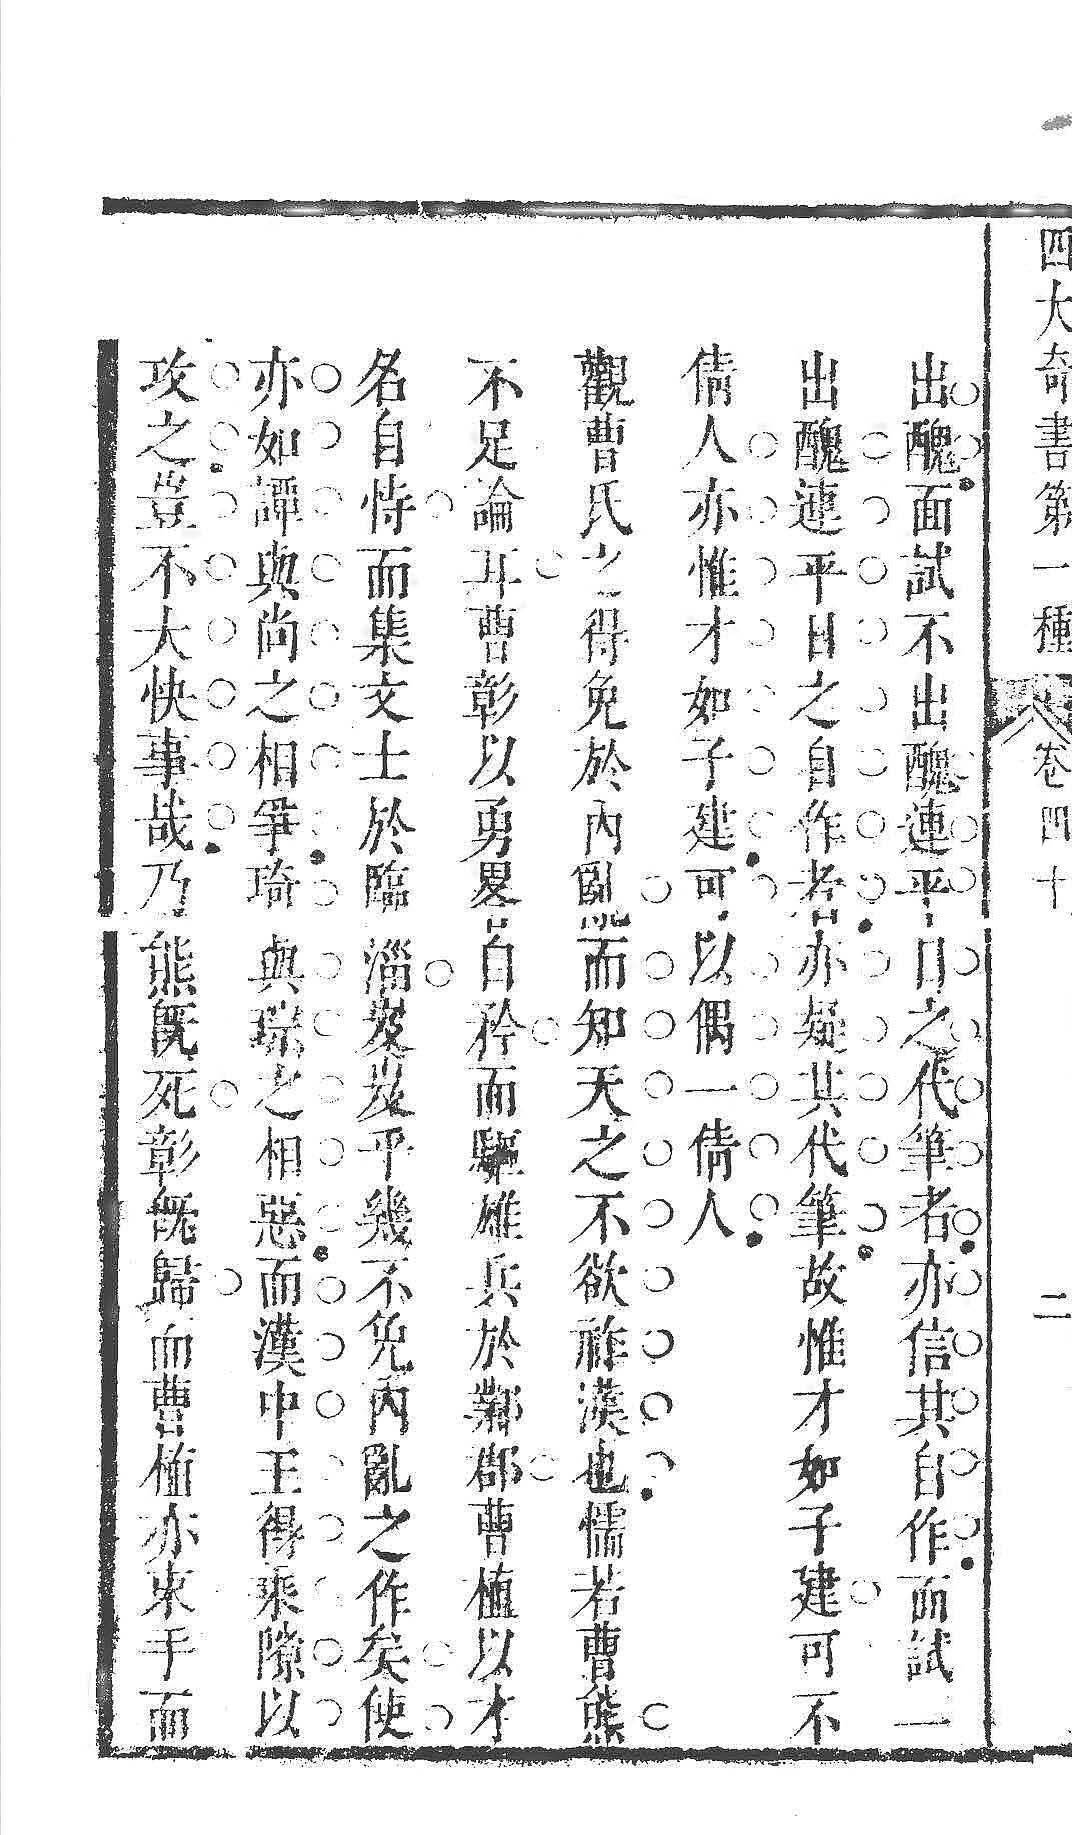 四大奇書第一種　卷四十　二
出醜面試不出醜連平日之代筆者亦信其自作面試一
出醜連平日之自作者亦疑其代筆故惟才如子建可不
倩人亦惟才如子建可以偶一倩人
觀曹氏之得免於內亂而知天之不欲祚漢也懦若曹熊
不足論耳曹彰以勇畧自矜而驅雄兵於鄴郡曹植以才
名自恃而集文士於臨淄岌岌乎幾不免內亂之作矣使
亦如譚與尚之相爭琦與琮之相惡而漢中王得乘隙以
攻之豈不大快事哉乃熊旣死彰旣歸而曹植亦束手而